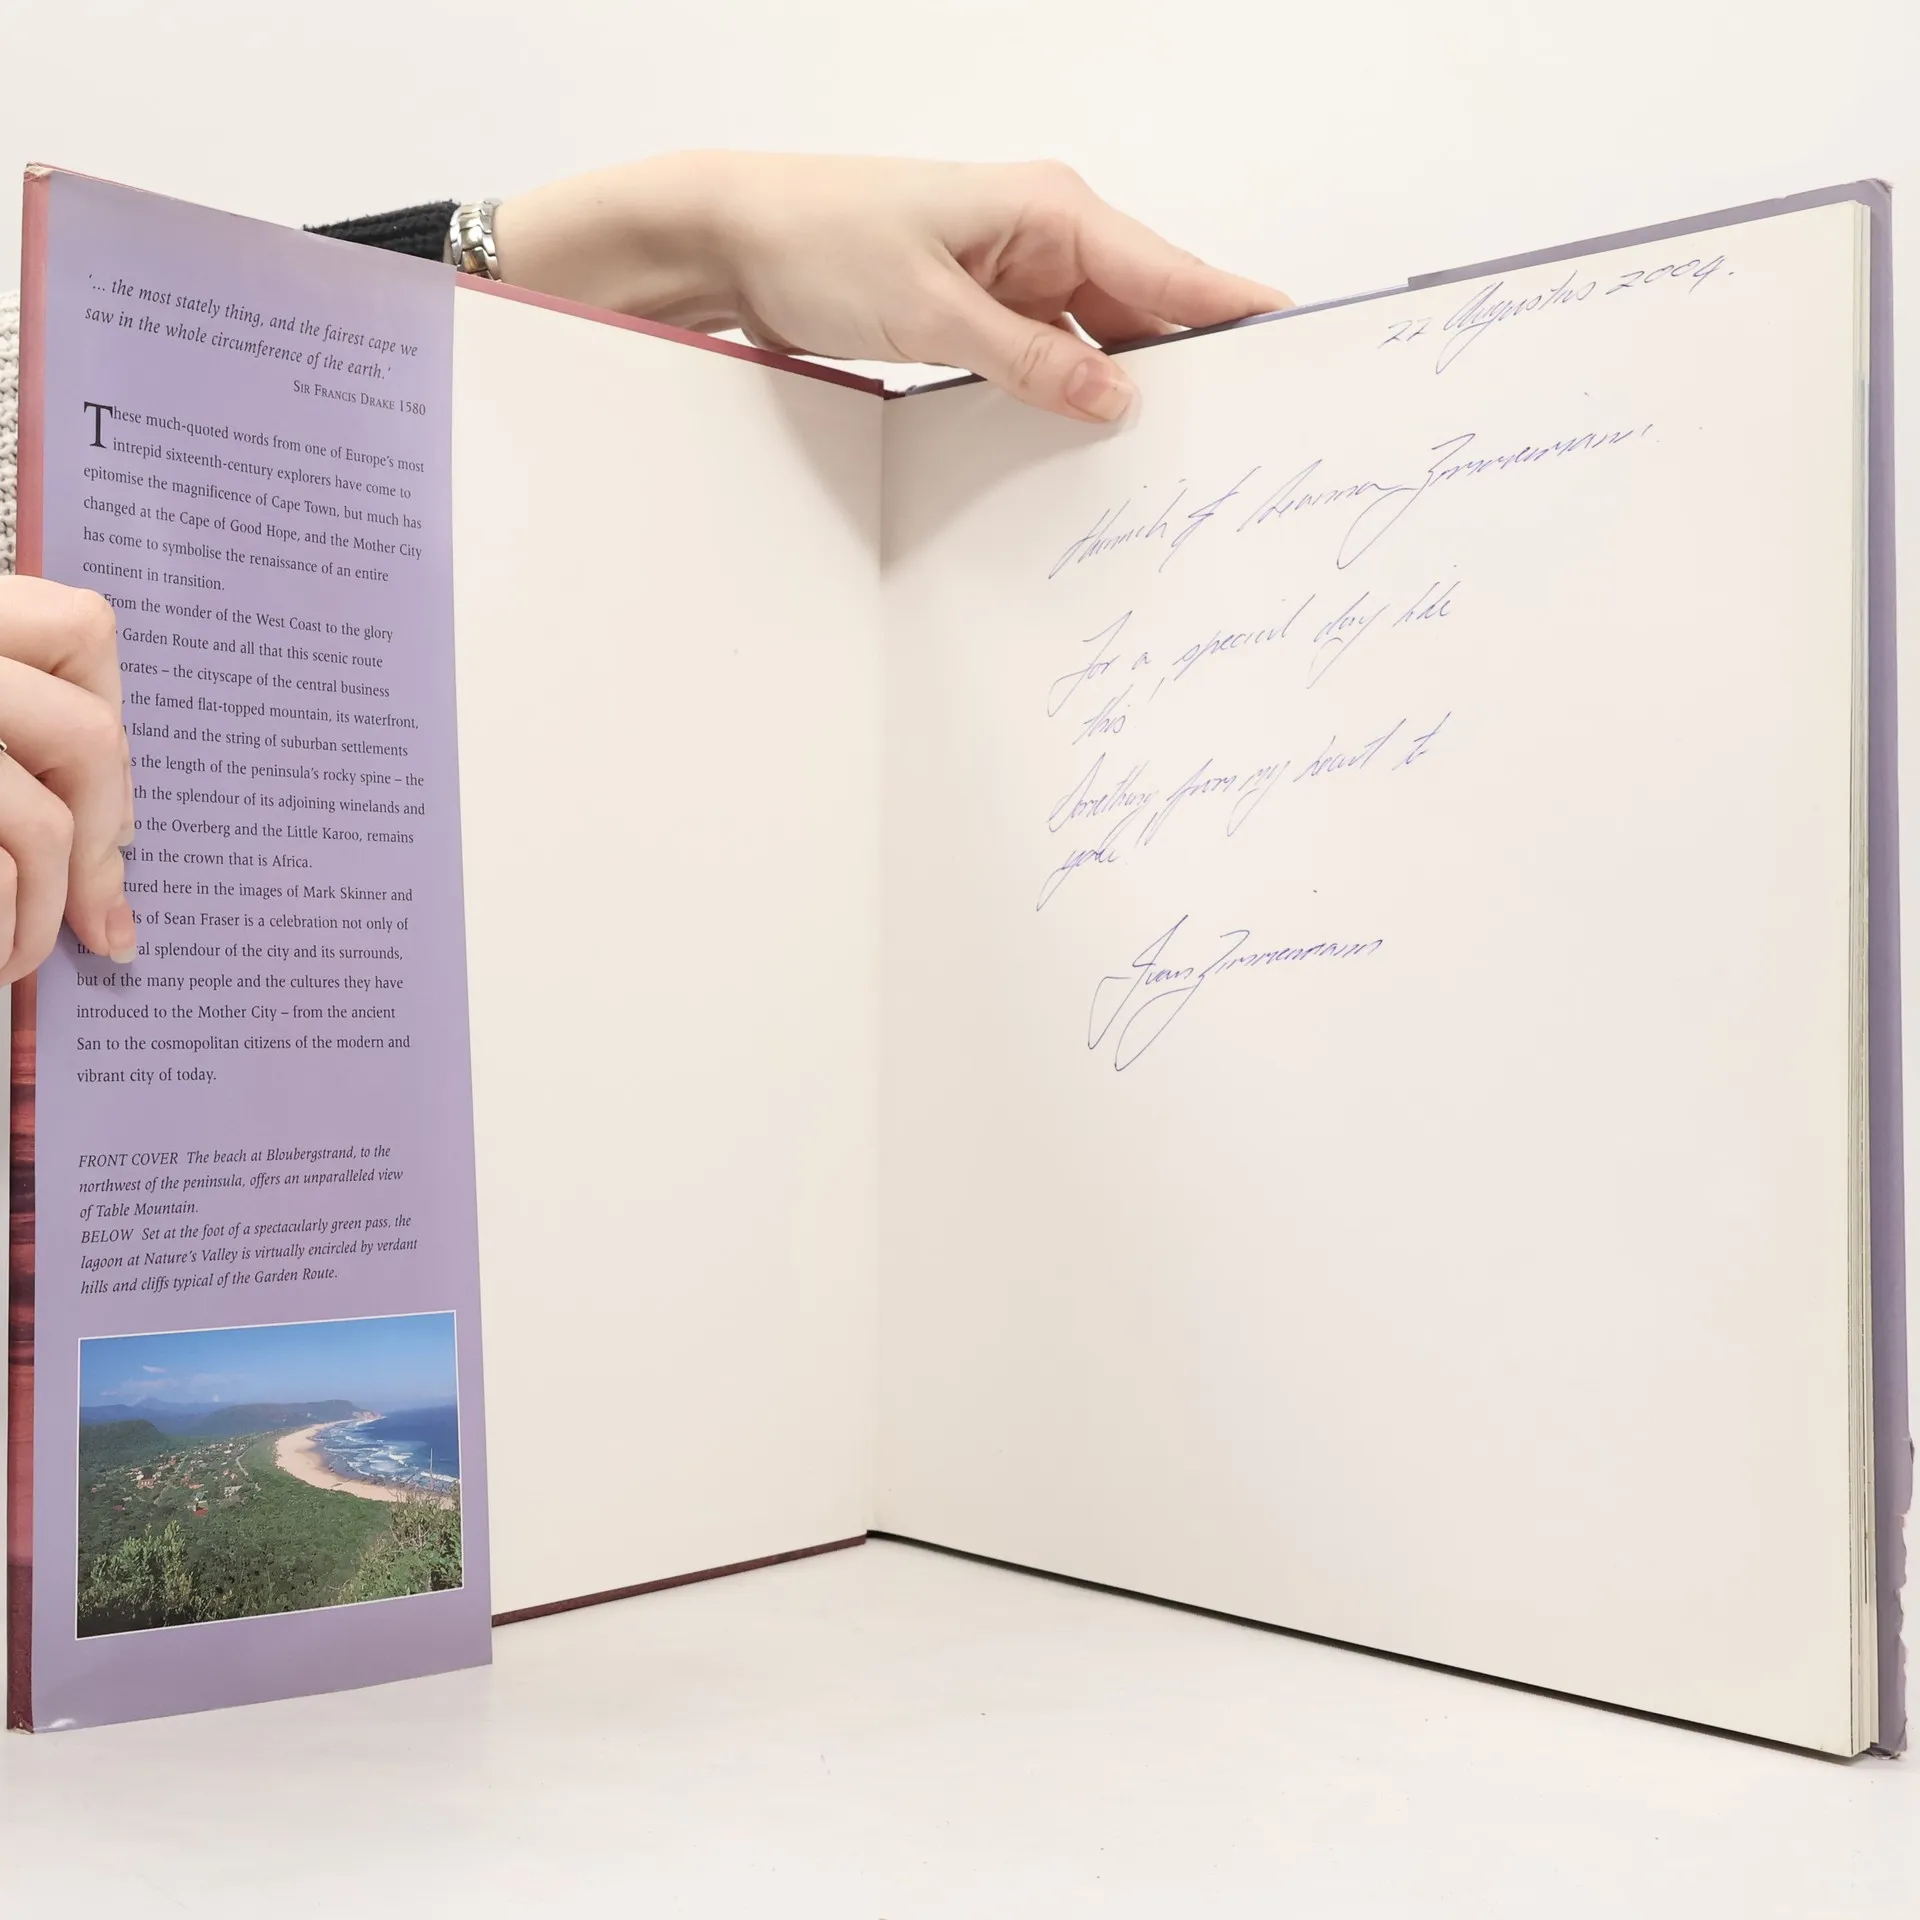 '... the most stately thing, and the fairest cape we
saw in the whole circumference of the earth.'
SIR FRANCIS DRAKE 1580
These much-quoted words from one of Europe's most
intrepid sixteenth-century explorers have come to
epitomise the magnificence of Cape Town, but much has
changed at the Cape of Good Hope, and the Mother City
has come to symbolise the renaissance of an entire
continent in transition.
From the wonder of the West Coast to the glory
Garden Route and all that this scenic route
orates – the cityscape of the central business
, the famed flat-topped mountain, its waterfront,
Island and the string of suburban settlements
the length of the peninsula's rocky spine – the
th the splendour of its adjoining winelands and
o the Overberg and the Little Karoo, remains
el in the crown that is Africa.
tured here in the images of Mark Skinner and
ds of Sean Fraser is a celebration not only of
al splendour of the city and its surrounds,
but of the many people and the cultures they have
introduced to the Mother City – from the ancient
San to the cosmopolitan citizens of the modern and
vibrant city of today.
FRONT COVER The beach at Bloubergstrand, to the
northwest of the peninsula, offers an unparalleled view
of Table Mountain.
BELOW Set at the foot of a spectacularly green pass, the
lagoon at Nature's Valley is virtually encircled by verdant
hills and cliffs typical of the Garden Route.
22 Augustus 2004.
& Zimmermann.
For a special day like
this!
Something from my heart to
Zimmermann